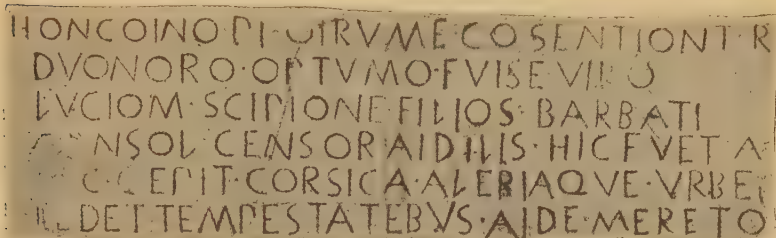 HONCOINO·PLOIRVME·COSENTIONT·R
DVONORO·OPTVMO·FVISE·VIRO
LVCIOM·SCIPIONE·FILIOS·BARBATI
CONSOL·CENSOR·AIDILIS·HIC·FVET·A
CEPIT·CORSICA·ALERIAQVE·VRBE
DEDET·TEMPESTATEBVS·AIDE·MERETO